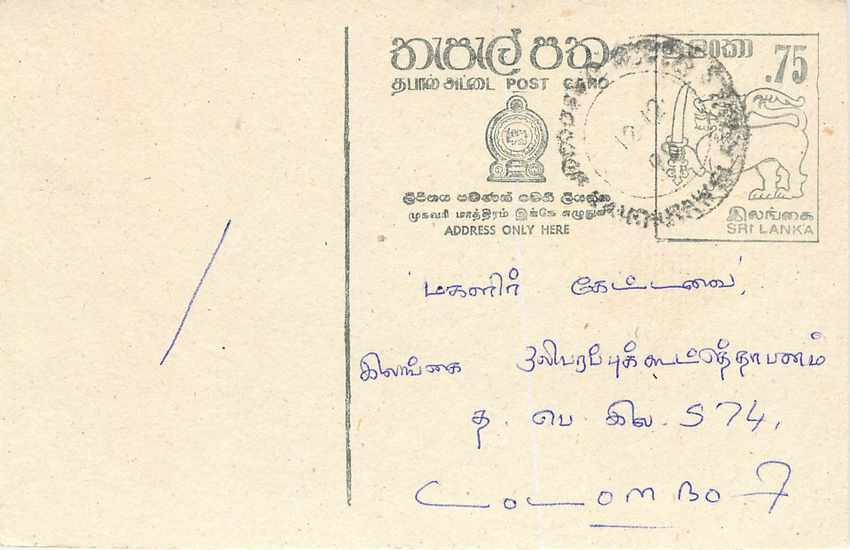 තැපැල් පත
தபால் அட்டை POST CARD
ලංකා
.75
ලිපිනය පමණක් මෙහි ලියන්න
முகவரி மாத்திரம் இங்கே எழுதுக
ADDRESS ONLY HERE
இலங்கை
SRI LANKA
12 12
மகளிர் கேட்டவை,
இலங்கை ஒலிபரப்புக்கூட்டுத்தாபனம்
த. பெ இல 574,
COLOMBO 7